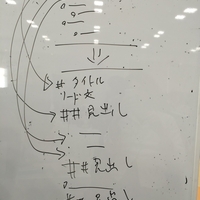 # タイトル
リード文
## 見出し
## 見出し
## 見出し